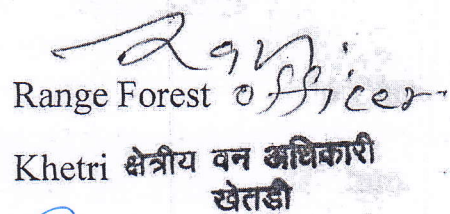 Range Forest officer
Khetri क्षेत्रीय वन अधिकारी
खेतडी